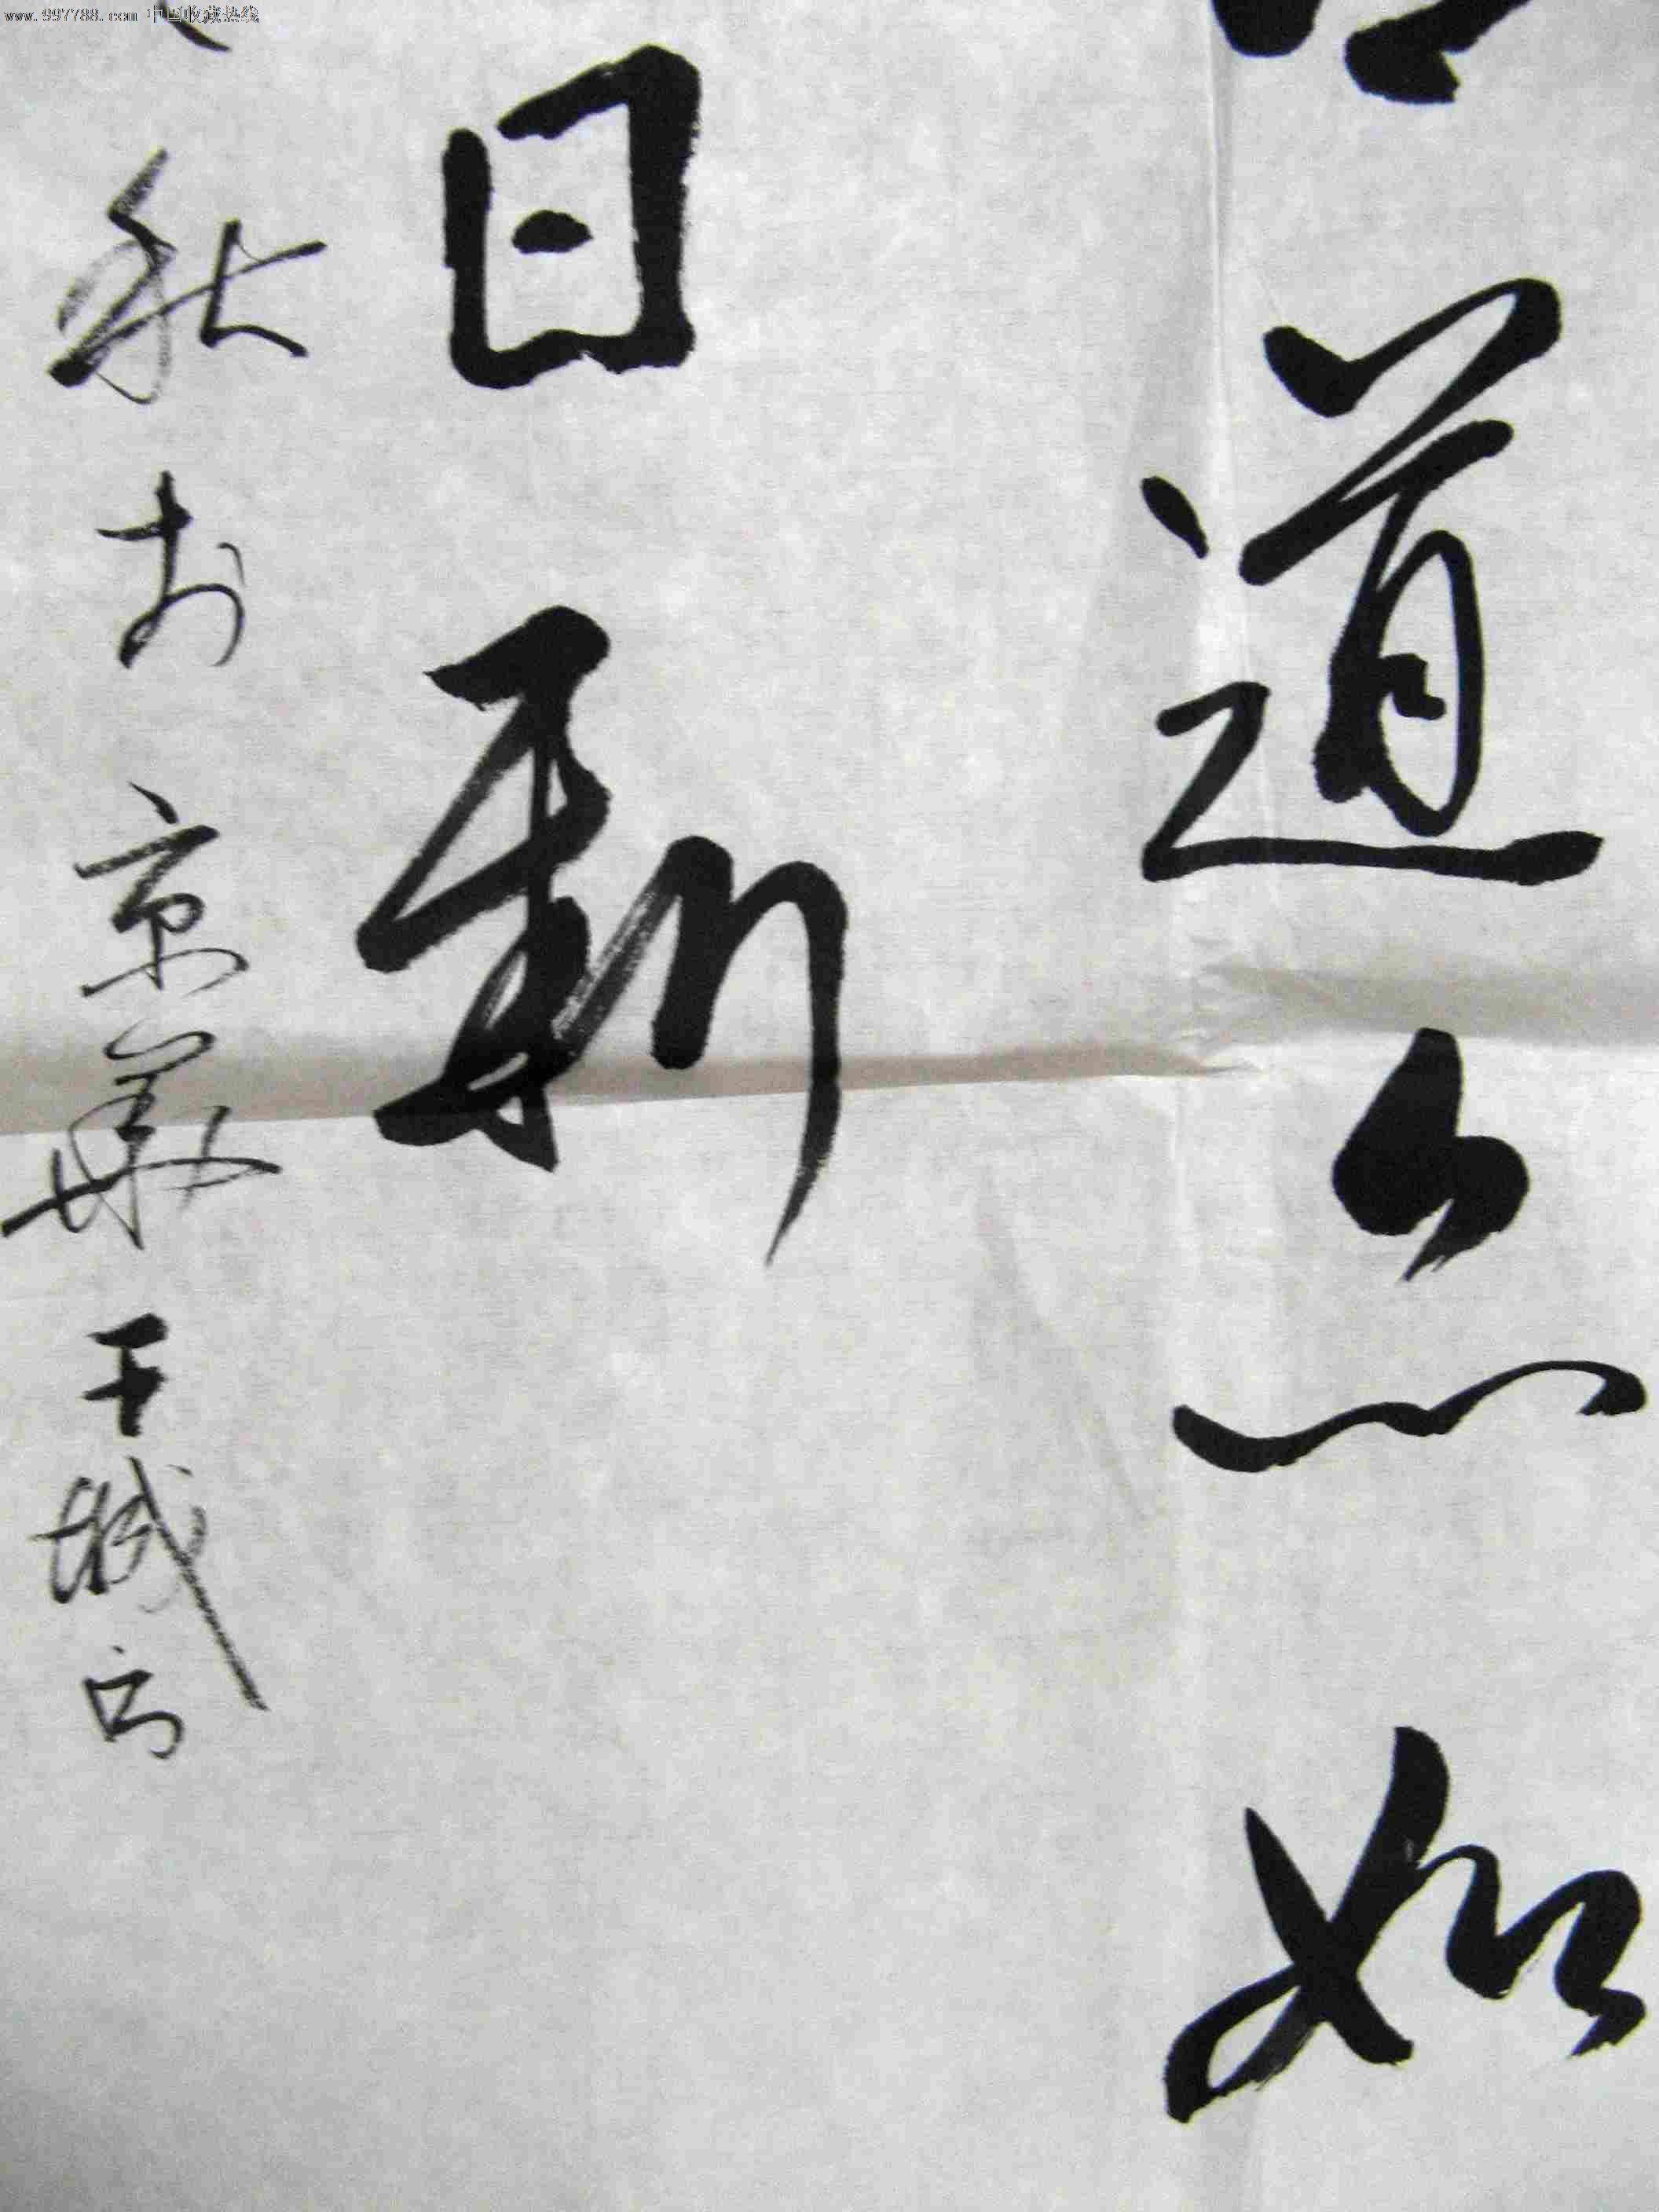 www.997788.com 中国收藏热线
道亦如
日新
秋於京華王城书